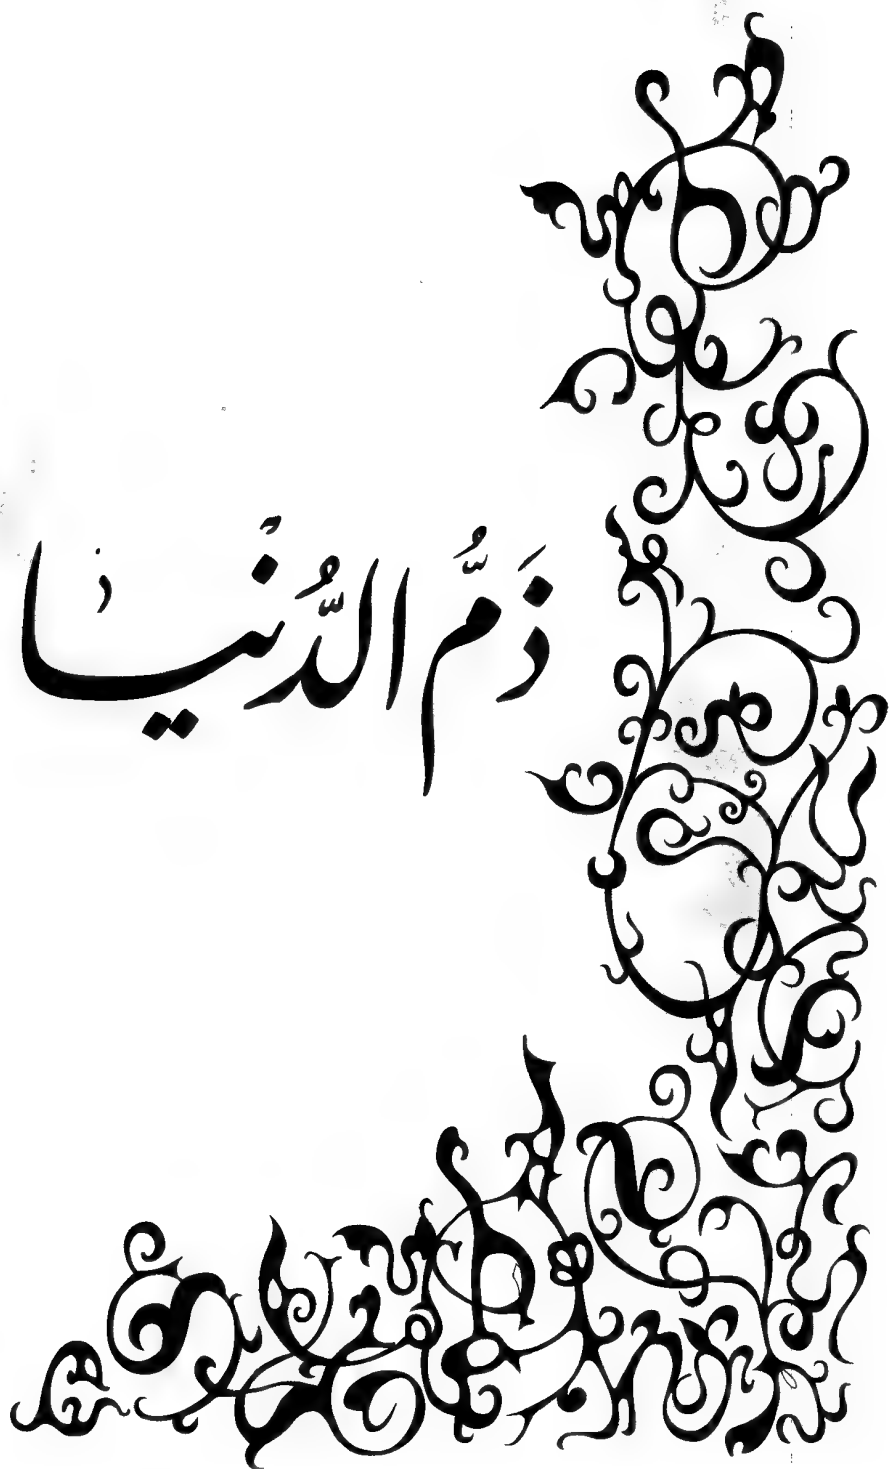 ذَمُّ الدُّنْيَا